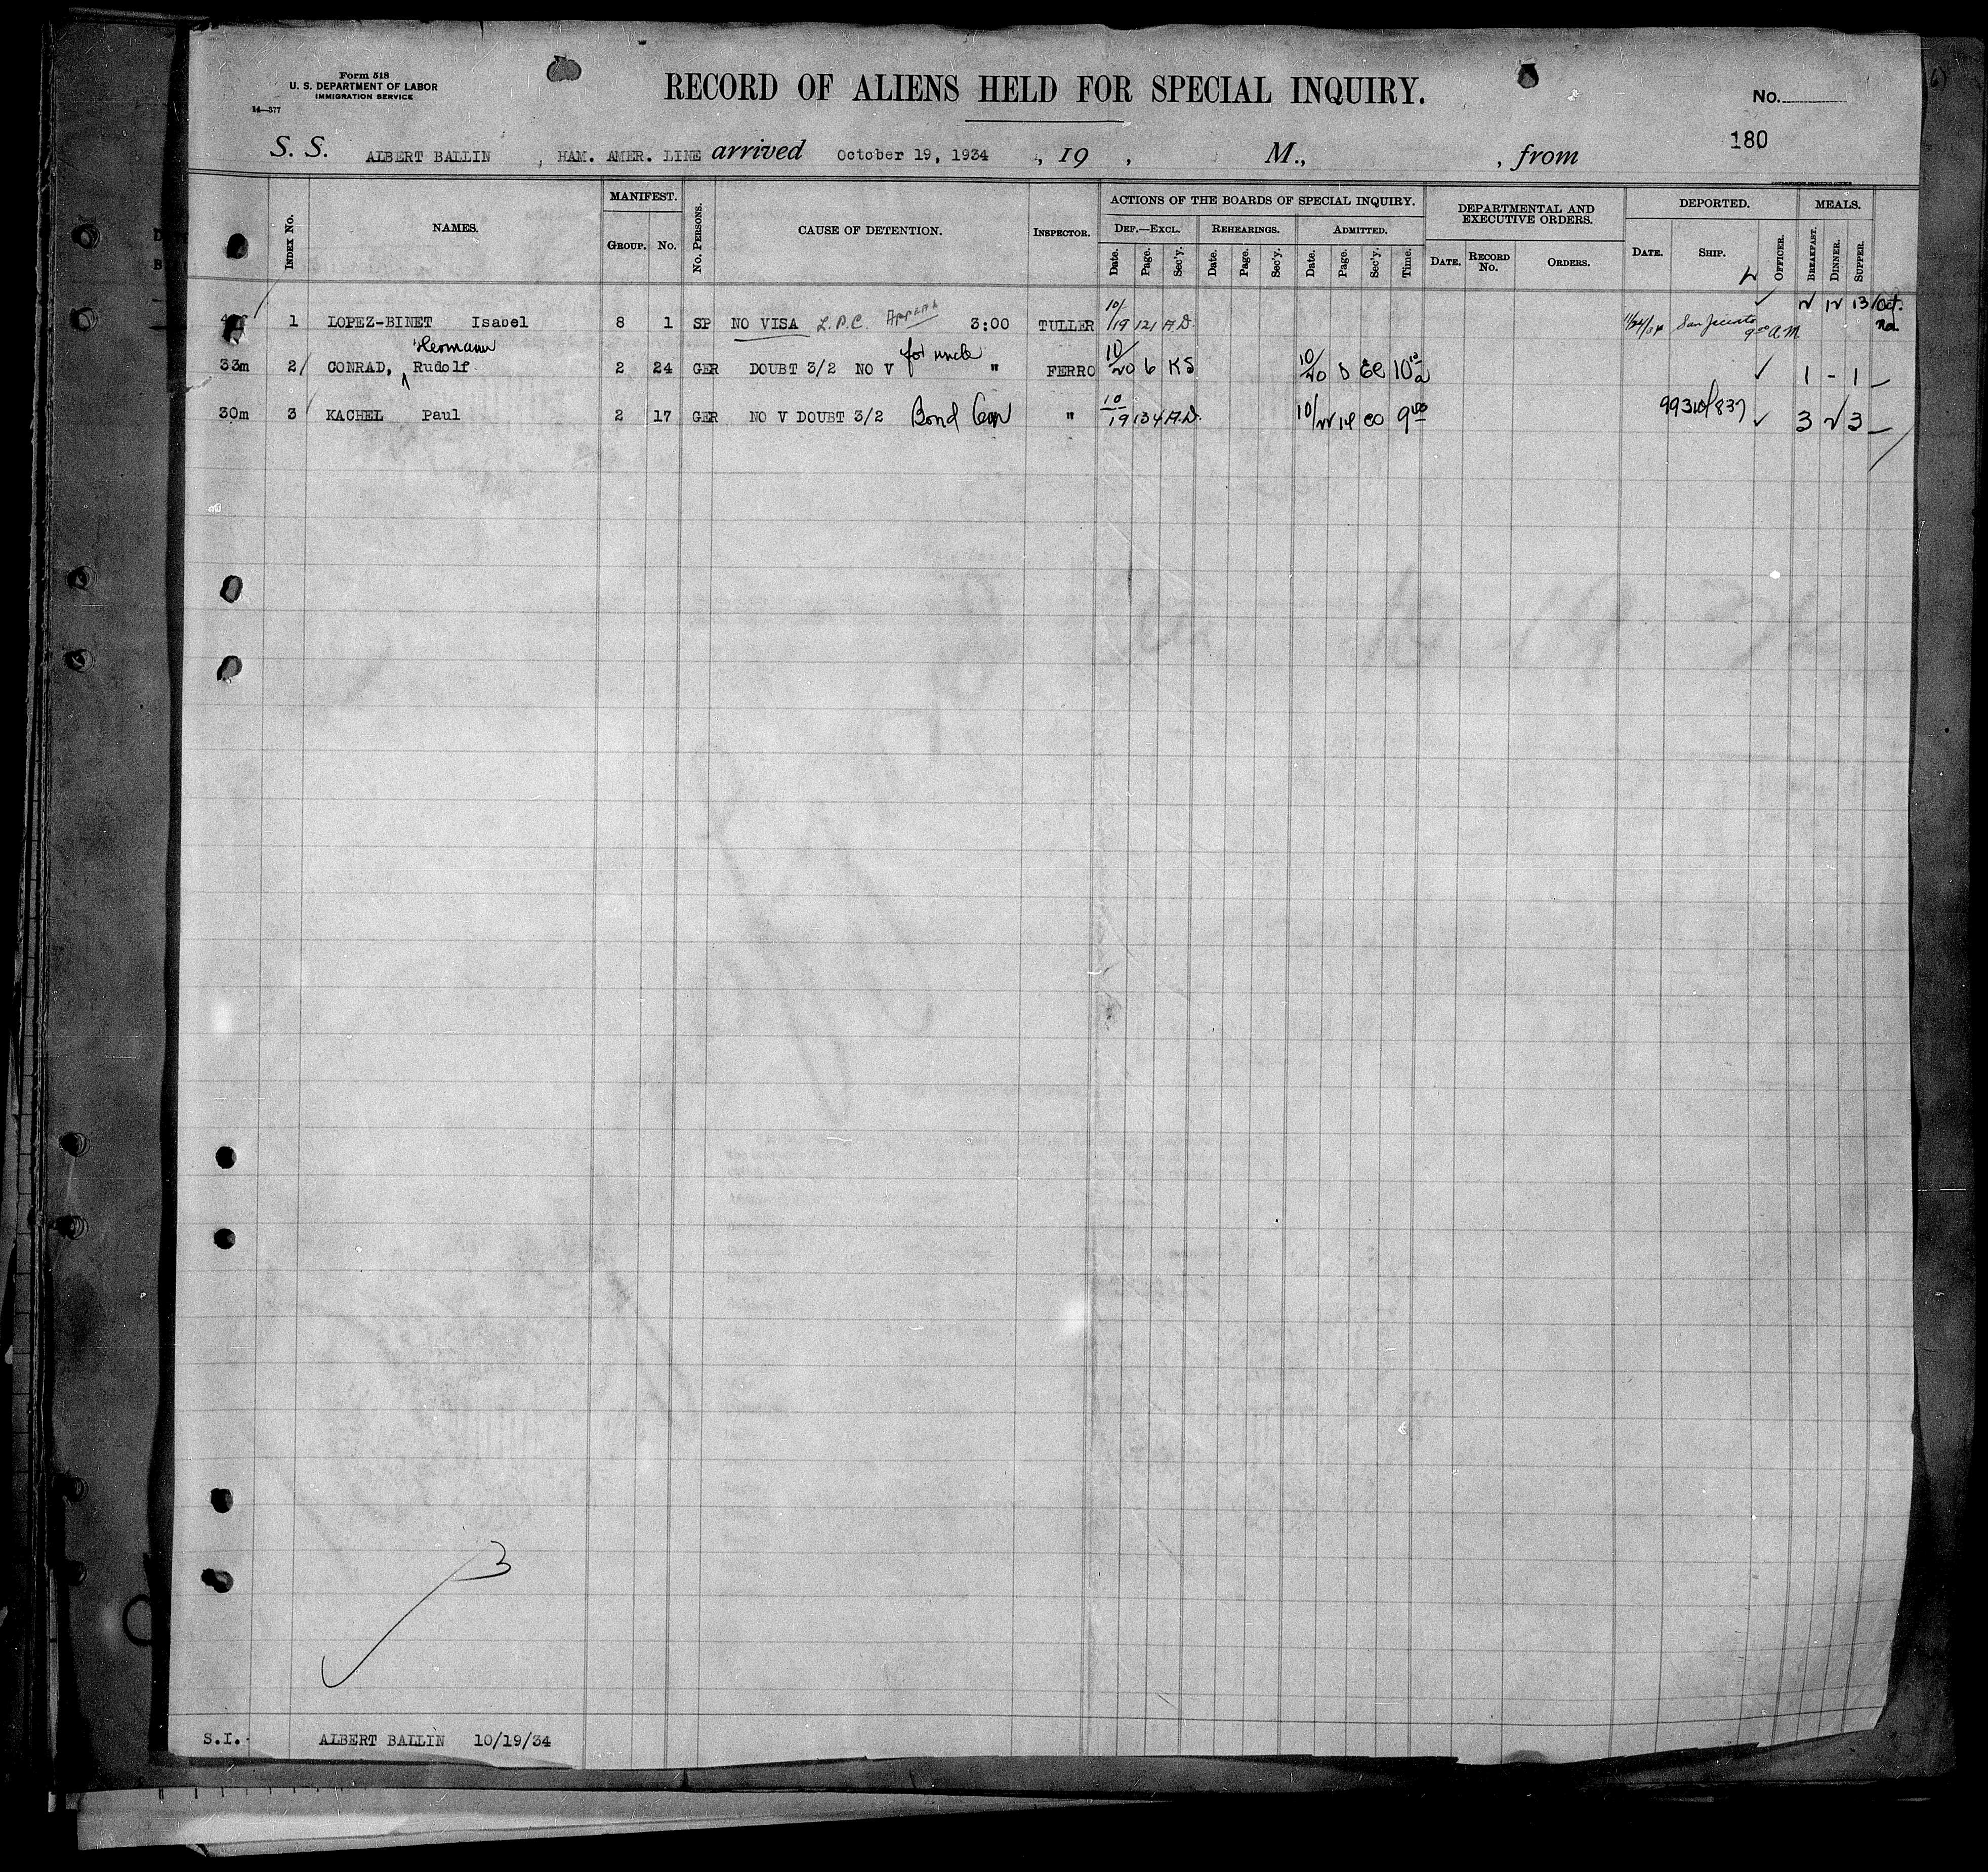 Form 518
U. S. DEPARTMENT OF LABOR
IMMIGRATION SERVICE
14—377
RECORD OF ALIENS HELD FOR SPECIAL INQUIRY.
No.
180
S. S. ALBERT BALLIN , HAM. AMER. LINE arrived October 19, 1934 , 19 , M., , from
INDEX No. NAMES. MANIFEST. GROUP. No. No. PERSONS. CAUSE OF DETENTION. INSPECTOR. ACTIONS OF THE BOARDS OF SPECIAL INQUIRY. DEPARTMENTAL AND EXECUTIVE ORDERS. DEPORTED. MEALS.
DEF.—EXCL. REHEARINGS. ADMITTED.
Date. Page. Sec'y. Date. Page. Sec'y. Date. Page. Sec'y. Time. DATE. RECORD No. ORDERS. DATE. SHIP. OFFICER. BREAKFAST. DINNER. SUPPER.
1 LOPEZ-BINET Isabel 8 1 SP NO VISA L.P.C. 3:00 TULLER 10/19 121 A.D. 9 00 A.M. 13 Oct.
Hermann
33m 2 CONRAD, Rudolf 2 24 GER DOUBT 3/2 NO V for uncle " FERRO 10/20 6 KS 10/20 1 - 1 —
30m 3 KACHEL Paul 2 17 GER NO V DOUBT 3/2 Bond " " 10/19 134 A.D. 10/22 9 00 99310/837 3 2 3 —
3
S.I. ALBERT BALLIN 10/19/34